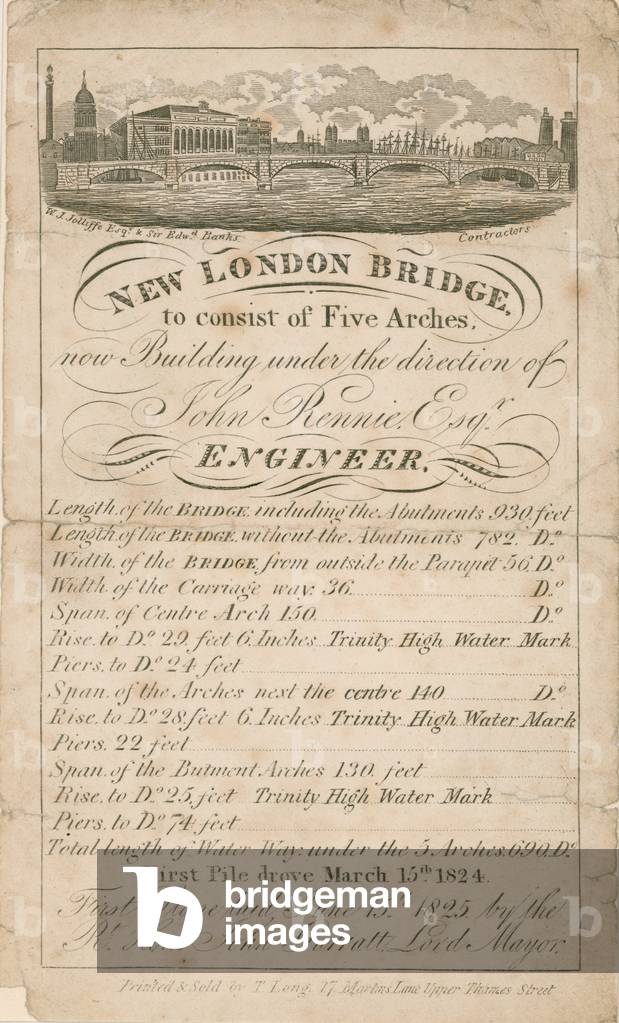 W. J. Jolliffe Esqr. & Sir Edwd. Banks
Contractors
NEW LONDON BRIDGE,
to consist of Five Arches,
now Building under the direction of
John Rennie, Esqr.
ENGINEER.
Length of the BRIDGE, including the Abutments 930 feet
Length of the BRIDGE, without the Abutments 782. Do.
Width of the BRIDGE, from outside the Parapet 56, Do.
Width of the Carriage way. 36. Do.
Span of Centre Arch 150. Do.
Rise, to Do. 29. feet 6. Inches Trinity High Water Mark
Piers. to Do. 24 feet
Span. of the Arches next the centre 140 Do.
Rise, to Do. 28. feet 6. Inches Trinity High Water Mark
Piers. 22 feet
Span. of the Butment Arches 130. feet
Rise, to Do. 25, feet Trinity High Water Mark
Piers. to Do. 74 feet
Total length of Water Way: under the 5 Arches, 690. Do.
First Pile drove March 15th 1824.
First laid, 1825. by the
Rt. Lord Mayor.
Printed & Sold by T. Long. 17, Martins Lane Upper Thames Street
bridgeman
images